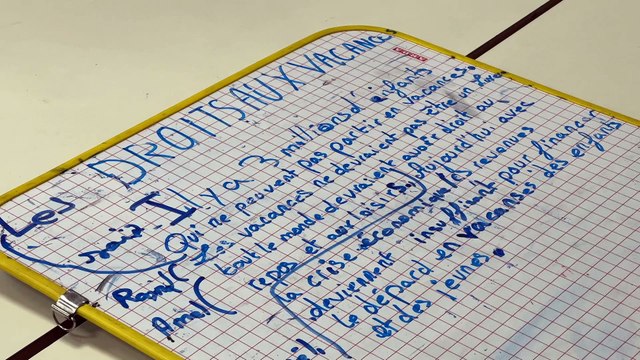 Les DROITS AUX VACANCE
Il y a 3 millions d'enfants
Qui ne peuvent pas partir en vacances.
Les vacances ne devraient pas être un luxe
tout le monde devraient avoir droit au
repos et au loisirs, aujourd'hui avec
la crise économique les revenus
deviennent insuffisant pour financer
le départ en vacanses des enfants
et des jeunes.